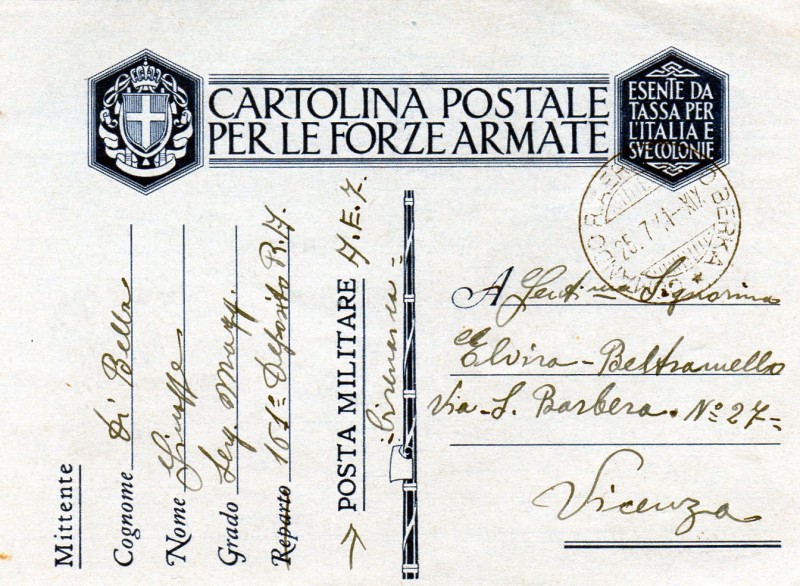 CARTOLINA POSTALE
PER LE FORZE ARMATE
ESENTE DA
TASSA PER
L'ITALIA E
SVE COLONIE
BERKA
25.7.41-XIX
Mittente
Cognome Di Bella
Nome Giuseppe
Grado Serg. Magg.
Reparto 161° Deposito R.
POSTA MILITARE
Cirenaica
A Gentima Signorina
Elvira Beltramello
Via S. Barbera N° 27
Vicenza